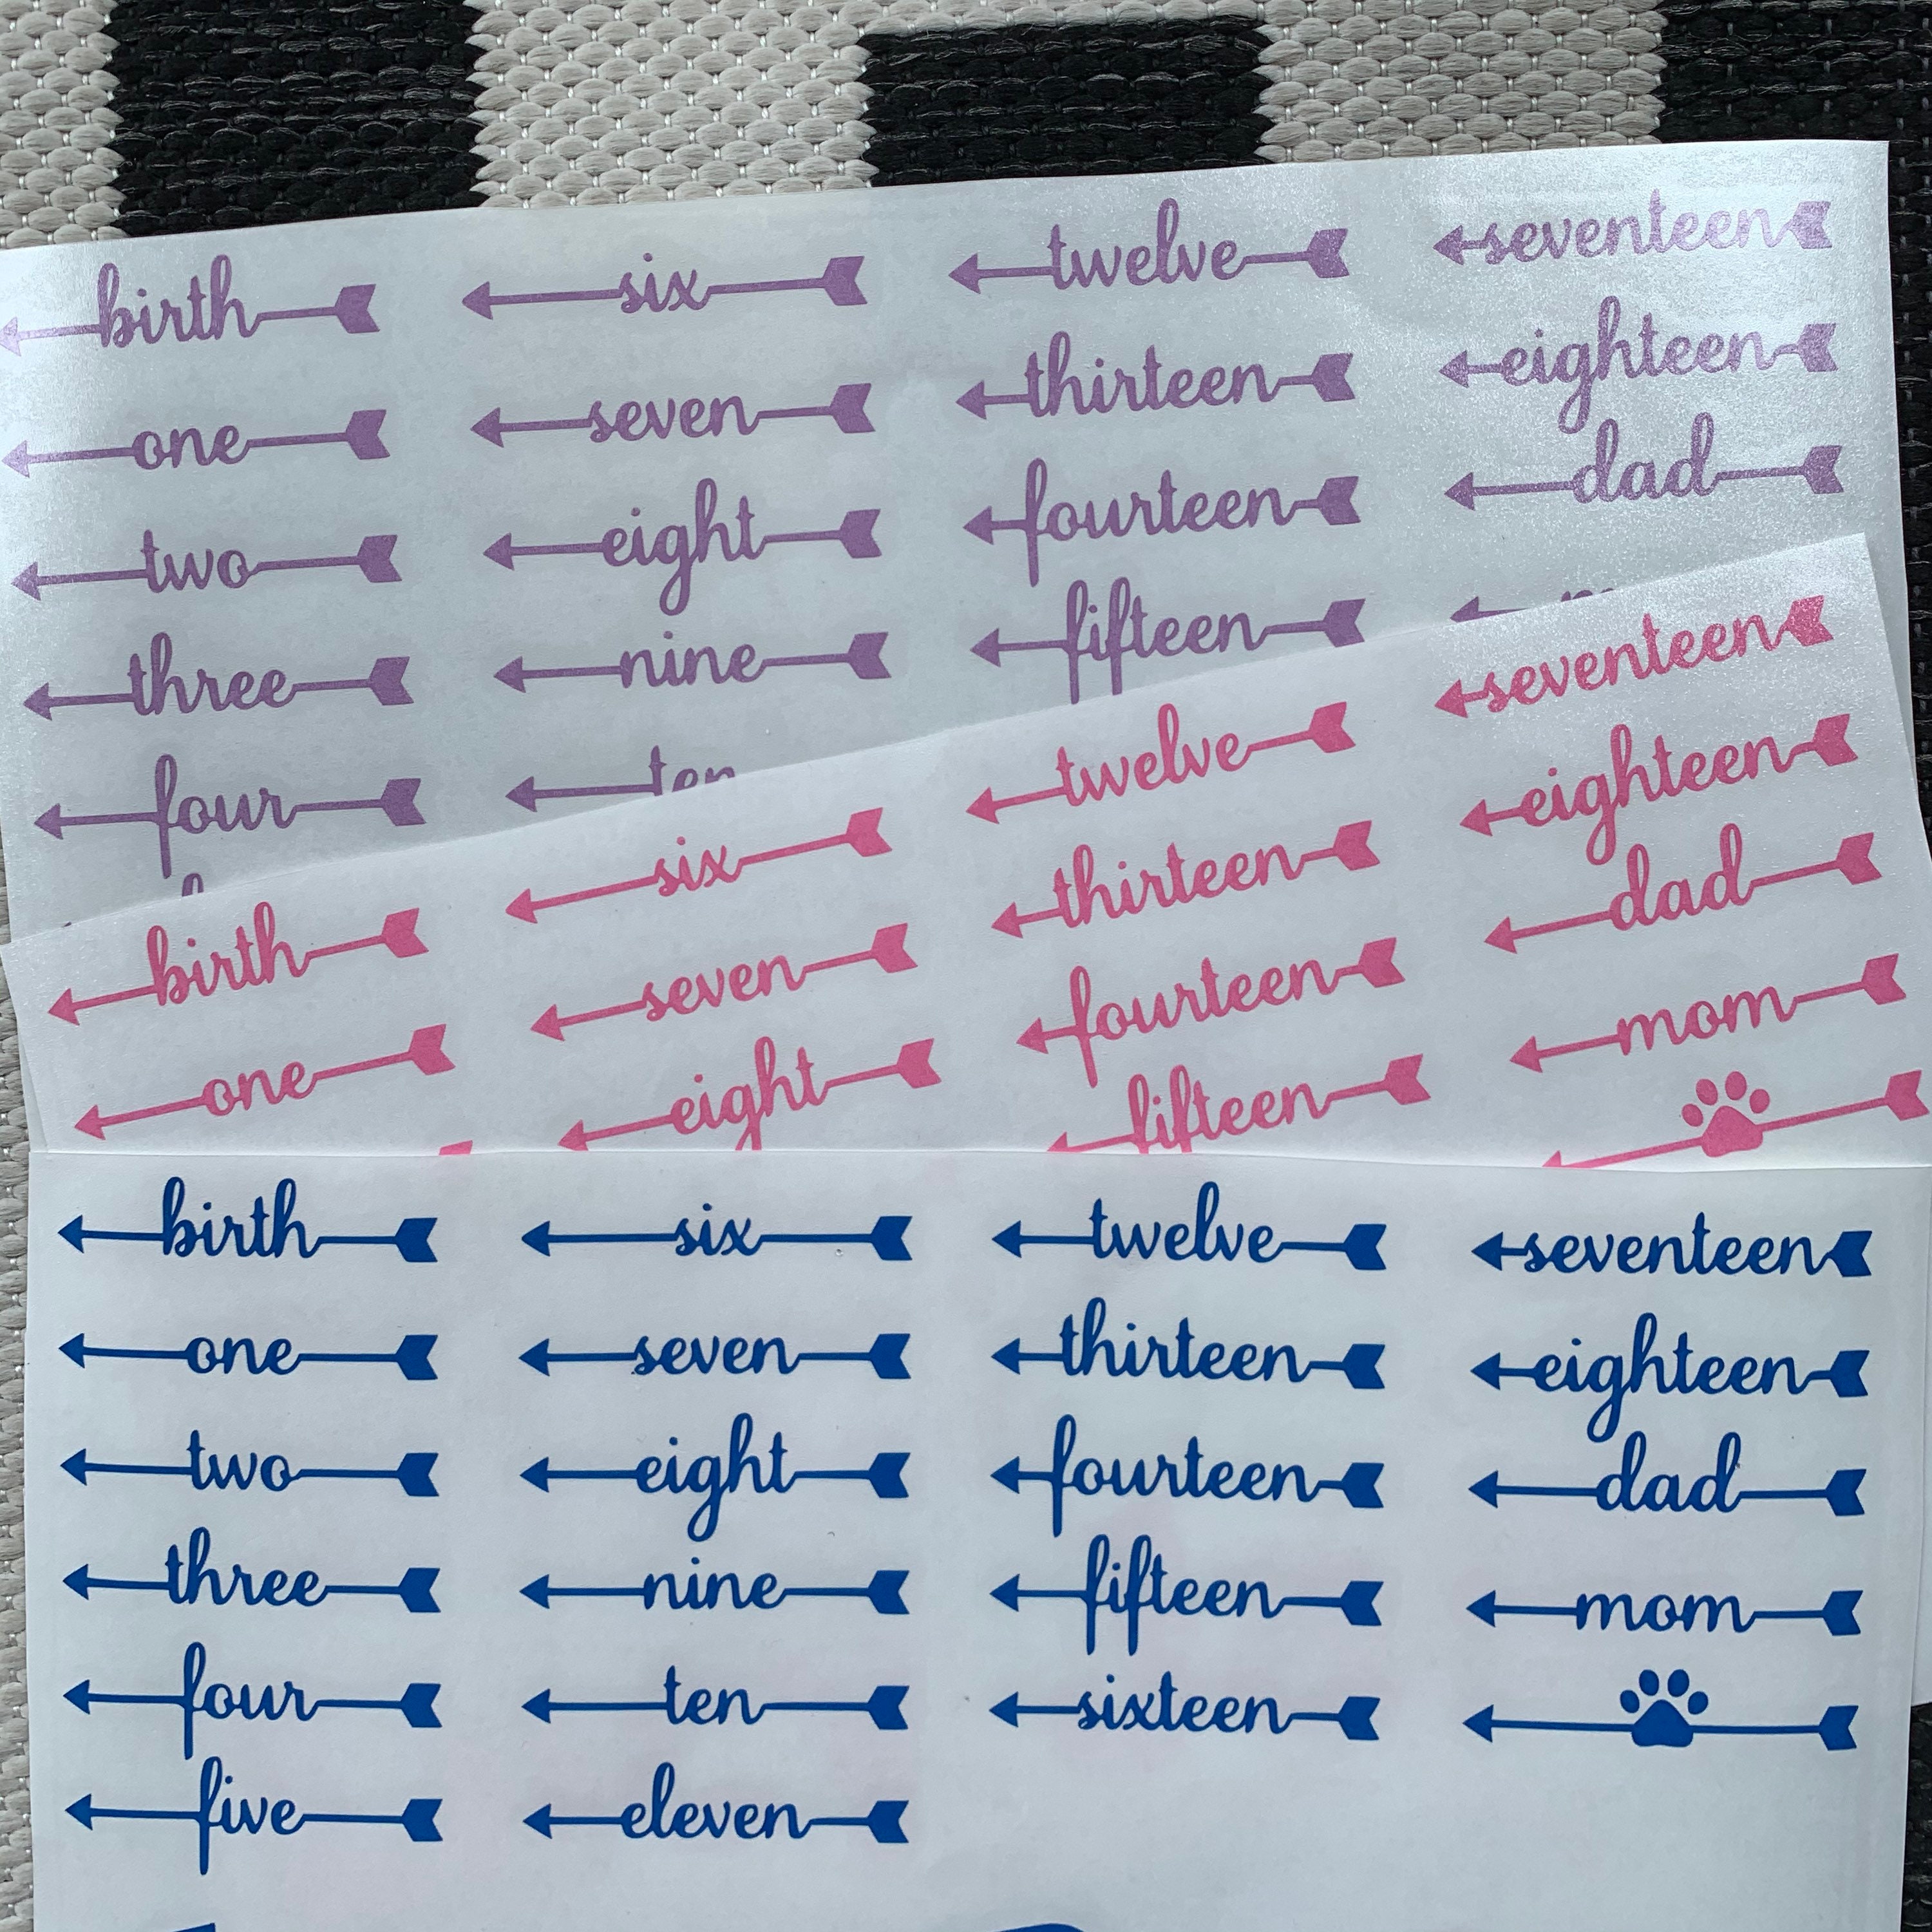 birth six twelve seventeen
one seven thirteen eighteen
two eight fourteen dad
three nine fifteen
four ten
birth six twelve seventeen
one seven thirteen eighteen
eight fourteen dad
fifteen mom
birth six twelve seventeen
one seven thirteen eighteen
two eight fourteen dad
three nine fifteen mom
four ten sixteen
five eleven